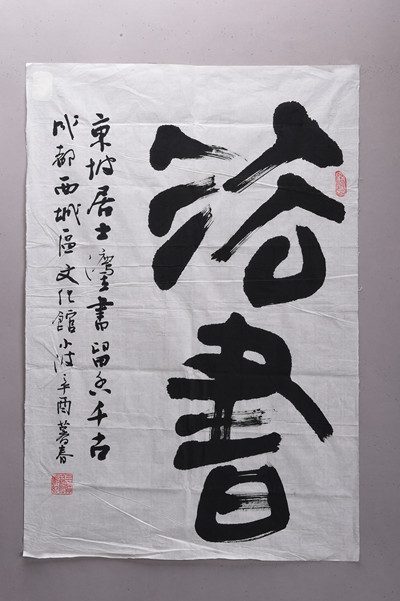 法書
東坡居士濡書留香千古
成都西城區文化館小波辛酉暮春